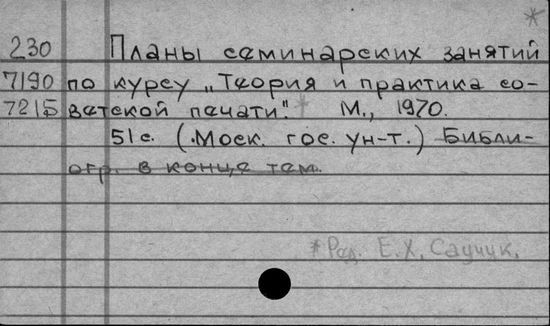 *
230 Планы семинарских занятий
7190 по курсу „Теория и практика со-
7215 ветской печати".* М., 1970.
51 с. (Моск. гос. ун-т.) Библи-
огр. в конце тем.
*Ред. Е.Х. Саучук.